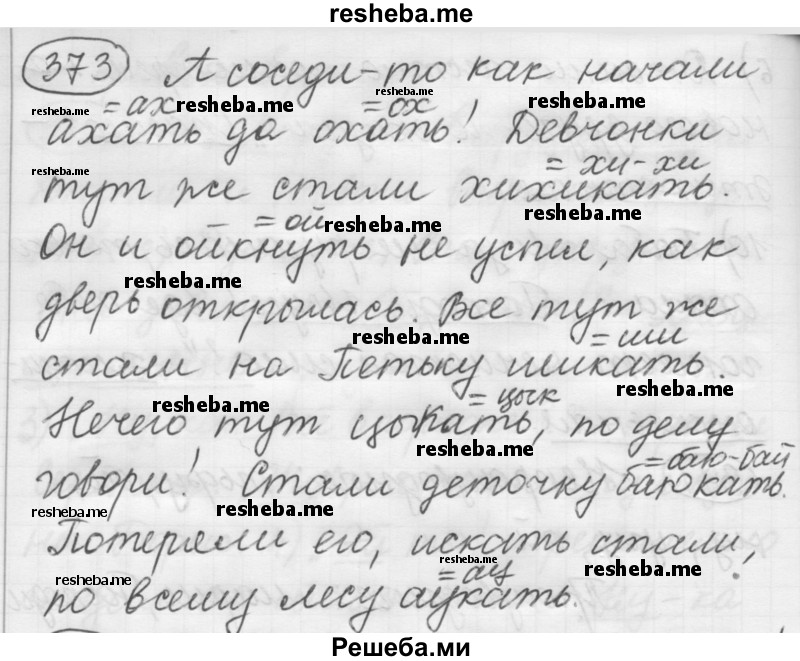 resheba.me
373 А соседи-то как начали
resheba.me =ах resheba.me =ох resheba.me resheba.me
ахать да охать! Девчонки
resheba.me = хи-хи
тут же стали хихикать.
resheba.me
=ой resheba.me
Он и ойкнуть не успел, как
resheba.me
дверь открылась. Все тут же
resheba.me =ши
стали на Петьку шикать.
resheba.me =цык resheba.me
Нечего тут цыкать, по делу
resheba.me =баю-бай
говори! Стали деточку баюкать.
resheba.me resheba.me
Потеряли его, искать стали,
resheba.me resheba.me =ау resheba.me
по всему лесу аукать.
Решеба.ми